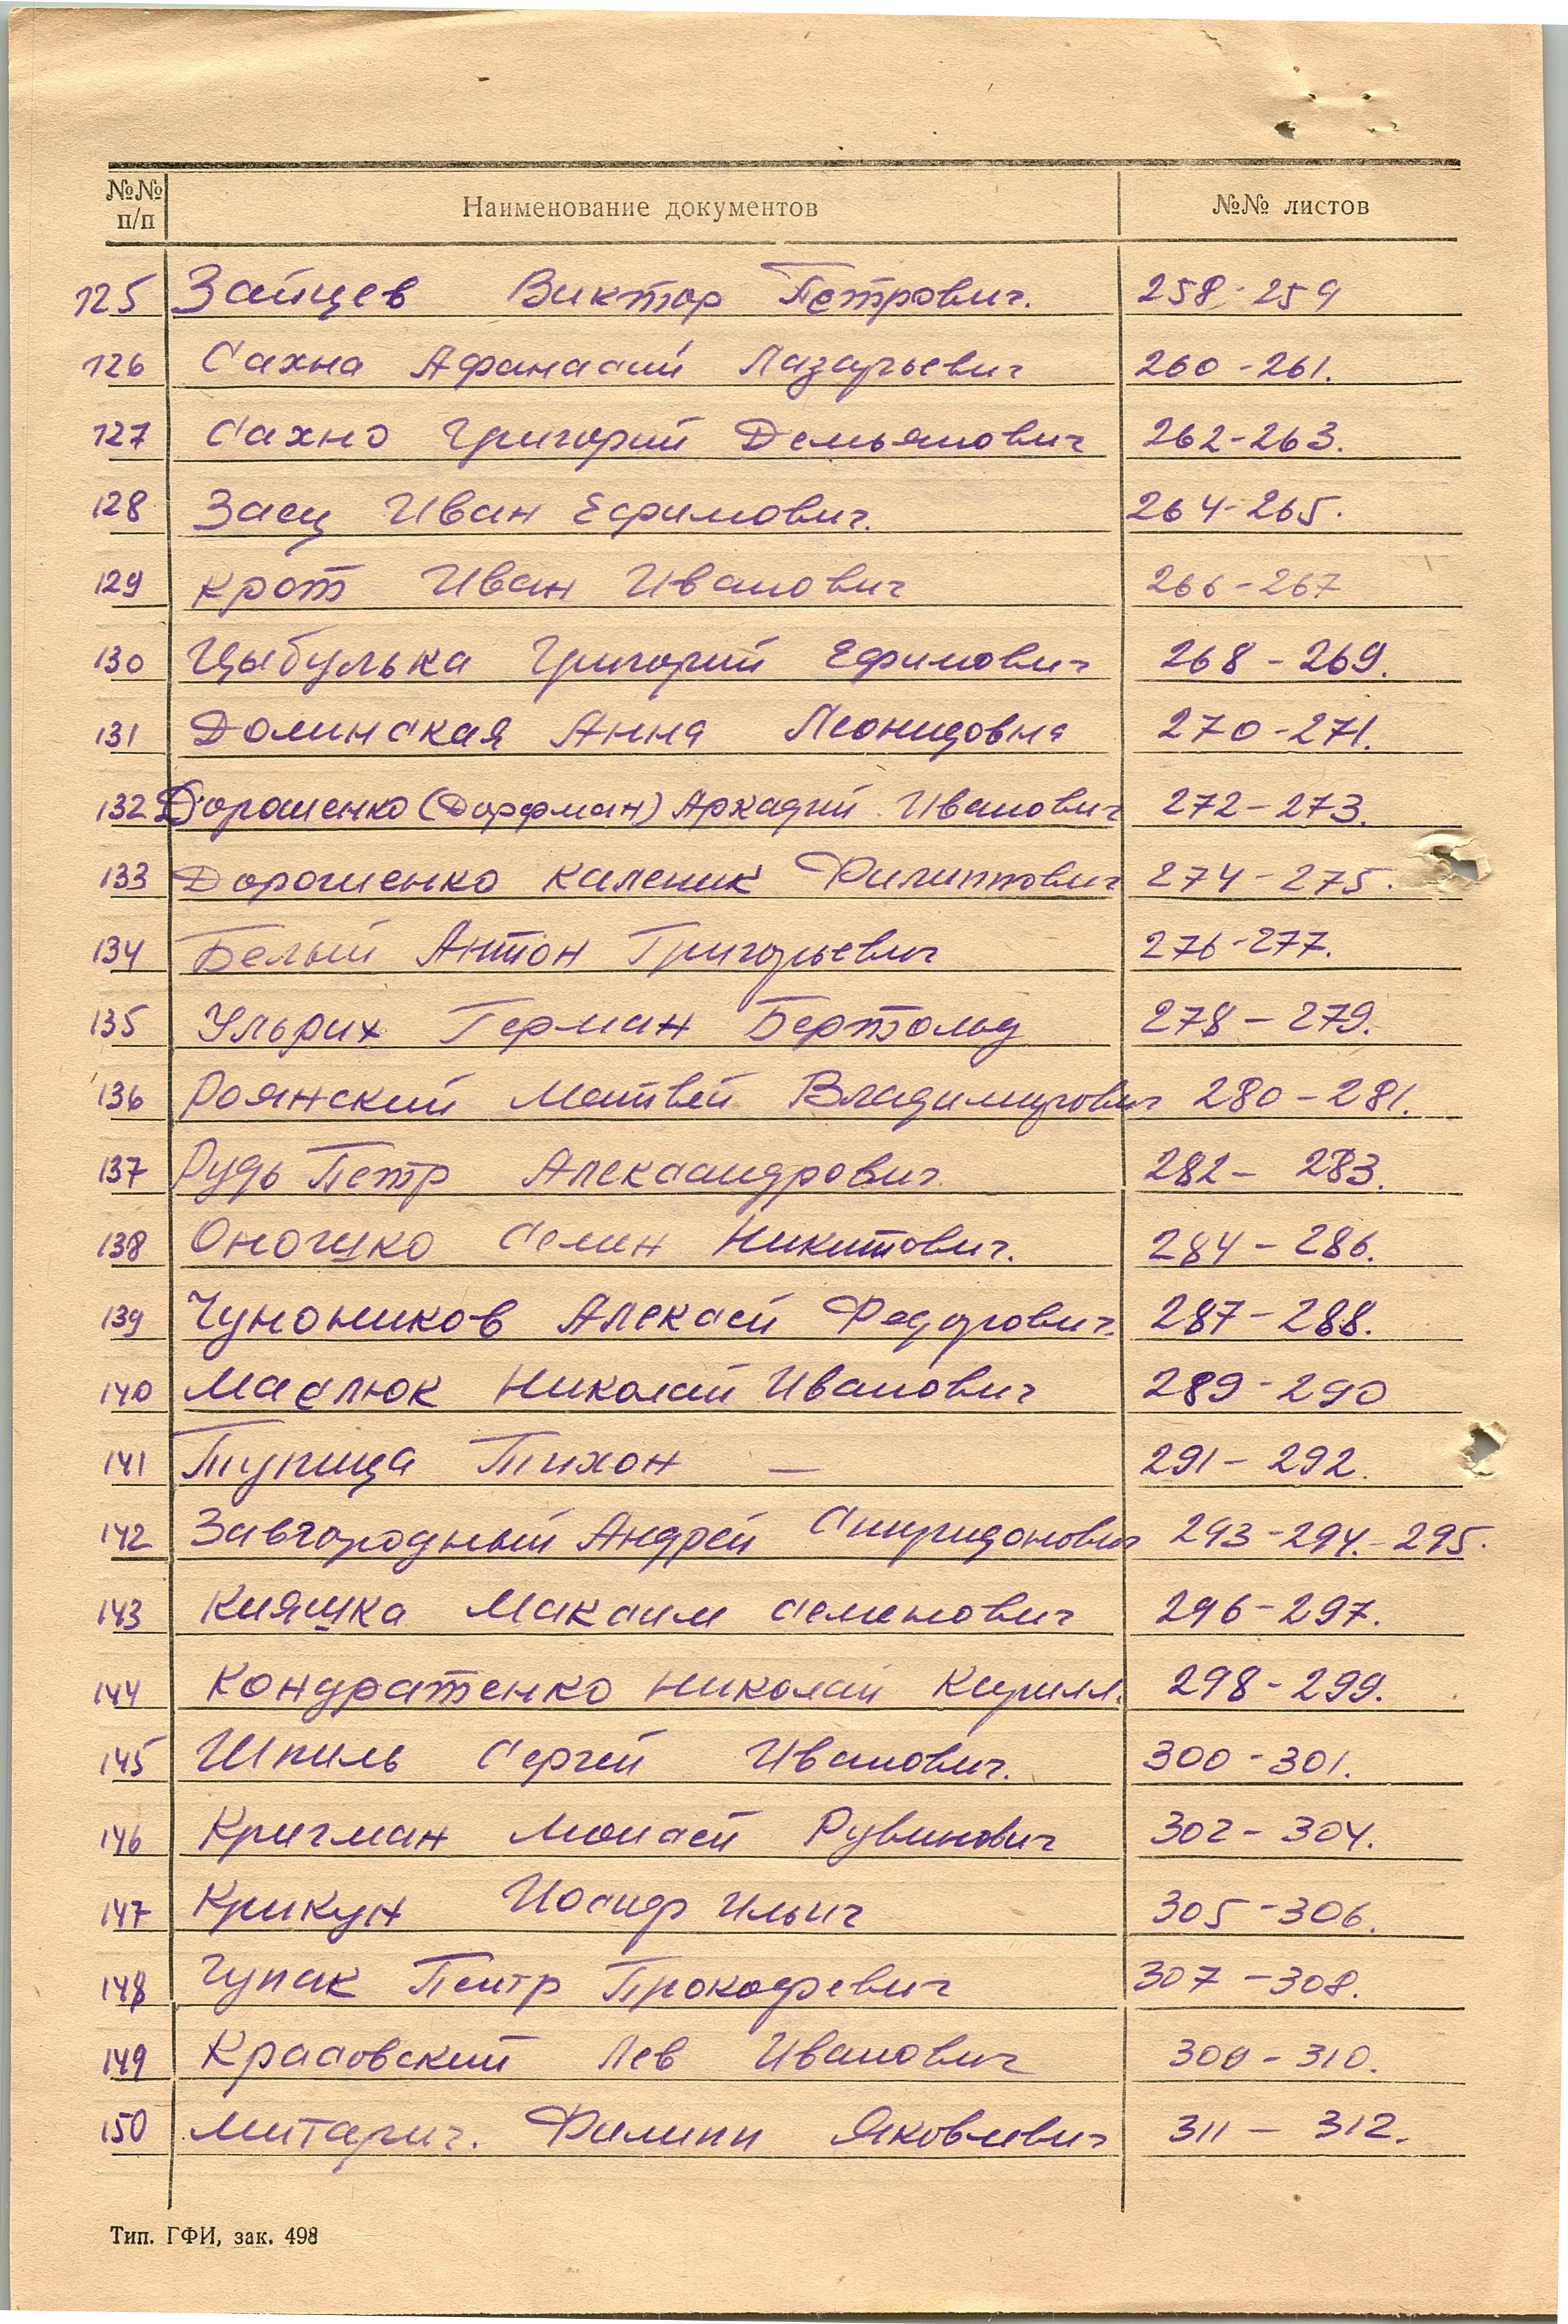 №№ п/п Наименование документов №№ листов
125 Зайцев Виктор Петрович. 258-259
126 Сахна Афанасий Лазарьевич 260-261.
127 Сахно Григорий Демьянович 262-263.
128 Заец Иван Ефимович. 264-265.
129 Крот Иван Иванович 266-267
130 Цыбулька Григорий Ефимович 268-269.
131 Долинская Анна Леонидовна 270-271.
132 Дорошенко (Дорфман) Аркадий Иванович 272-273.
133 Дорошенко Каленик Филиппович 274-275.
134 Белый Антон Григорьевич 276-277.
135 Ульрих Герман Бертольд 278-279.
136 Роянский Матвей Владимирович 280-281.
137 Рудь Петр Александрович 282-283.
138 Оношко Семен Никитович. 284-286.
139 Чуноников Алексей Федорович. 287-288.
140 Маслюк Николай Иванович 289-290
141 Тупица Тихон — 291-292.
142 Завгородный Андрей Спиридонович 293-294.-295.
143 Кияшка Максим Семенович 296-297.
144 Кондратенко Николай Кирилл. 298-299.
145 Шпиль Сергей Иванович. 300-301.
146 Кригман Моисей Рувинович 302-304.
147 Крикун Иосиф Ильич 305-306.
148 Чупак Петр Прокофевич 307-308.
149 Красовский Лев Иванович 309-310.
150 Митарич. Филипп Яковлевич 311-312.
Тип. ГФИ, зак. 498